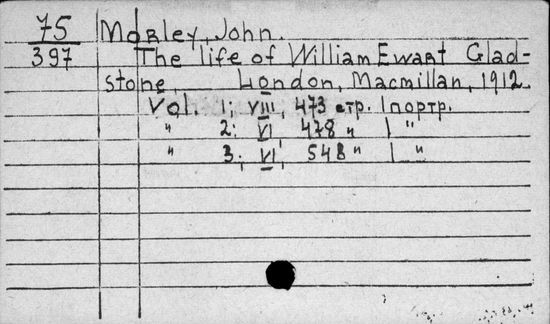 75
397
Morley, John.
The life of William Ewart Glad-
stone, London, Macmillan, 1912.
Vol. 1; VIII, 473 стр. 1 портр.
" 2; VI, 478 " 1 "
" 3; VI, 548 " 1 "